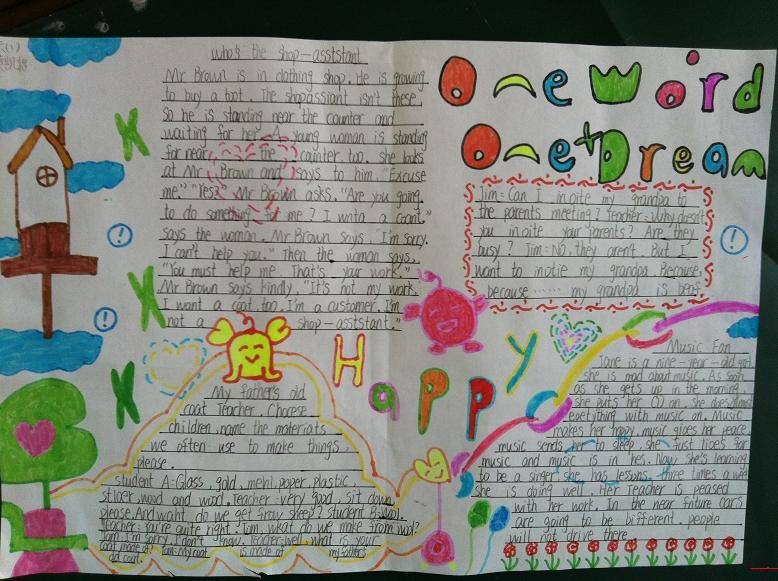 who's the shop-asststant
Mr Brown is in clothing shop. He is growing
to buy a toot. The shopassiant isn't these.
So he is standing near the counter and
waiting for her. A young woman is standing
for near the cainter too. she looks
at Mr Brown and says to him "Excuse
me." "Yes?" Mr Brown asks. "Are you going
to do something for me? I wnta a coat."
says the woman. Mr Brown snys. I'm sorry.
I can't help you." Then the woman says,
"You must help me. That's your work."
Mr Brown says kindly, "It's not my work.
I want a coat too. I'm a customer. I'm
not a shop-asststant."
One Word
One Dream
Jim: Can I inoite my grandpa to
the parents meeting? Teacher: Why doesn't
you inoite your parents? Are they
busy? Jim: No, they aren't. But I
want to inotie my grandpa. Becouse
because ...... my grandpa is beaf.
Happy
My father's old
coat Teacher. Choese
children, name the materiats
we often use to make things,
please.
student A: Glass, gold, paper, plastic,
wood and wool. Teacher: very good, sit down
please. And waht do we get from sheep? Student B: wool.
Teacher: You're quite right! Tom, what do we make from wool?
Tom: I'm sorry. I don't know. Teacher: well, what is your
coat made of? Tom: My coat is made of my father's
old coat.
Music Fan
Jane is a nine-year-old girl.
she is mad about music. As soon
as she gets up in the morning,
she puts her on. she does
everything with music on. Music
makes her happy, music gioes her peace
music sends her to sleep she just lioes for
music and music is in hes. Now, she's learning
to be a singer she has lessons, three times a week
she is doing well. Her Teacher is peased
with her work. In the near fniure cars
are going to be bifferent. people
will not drive there